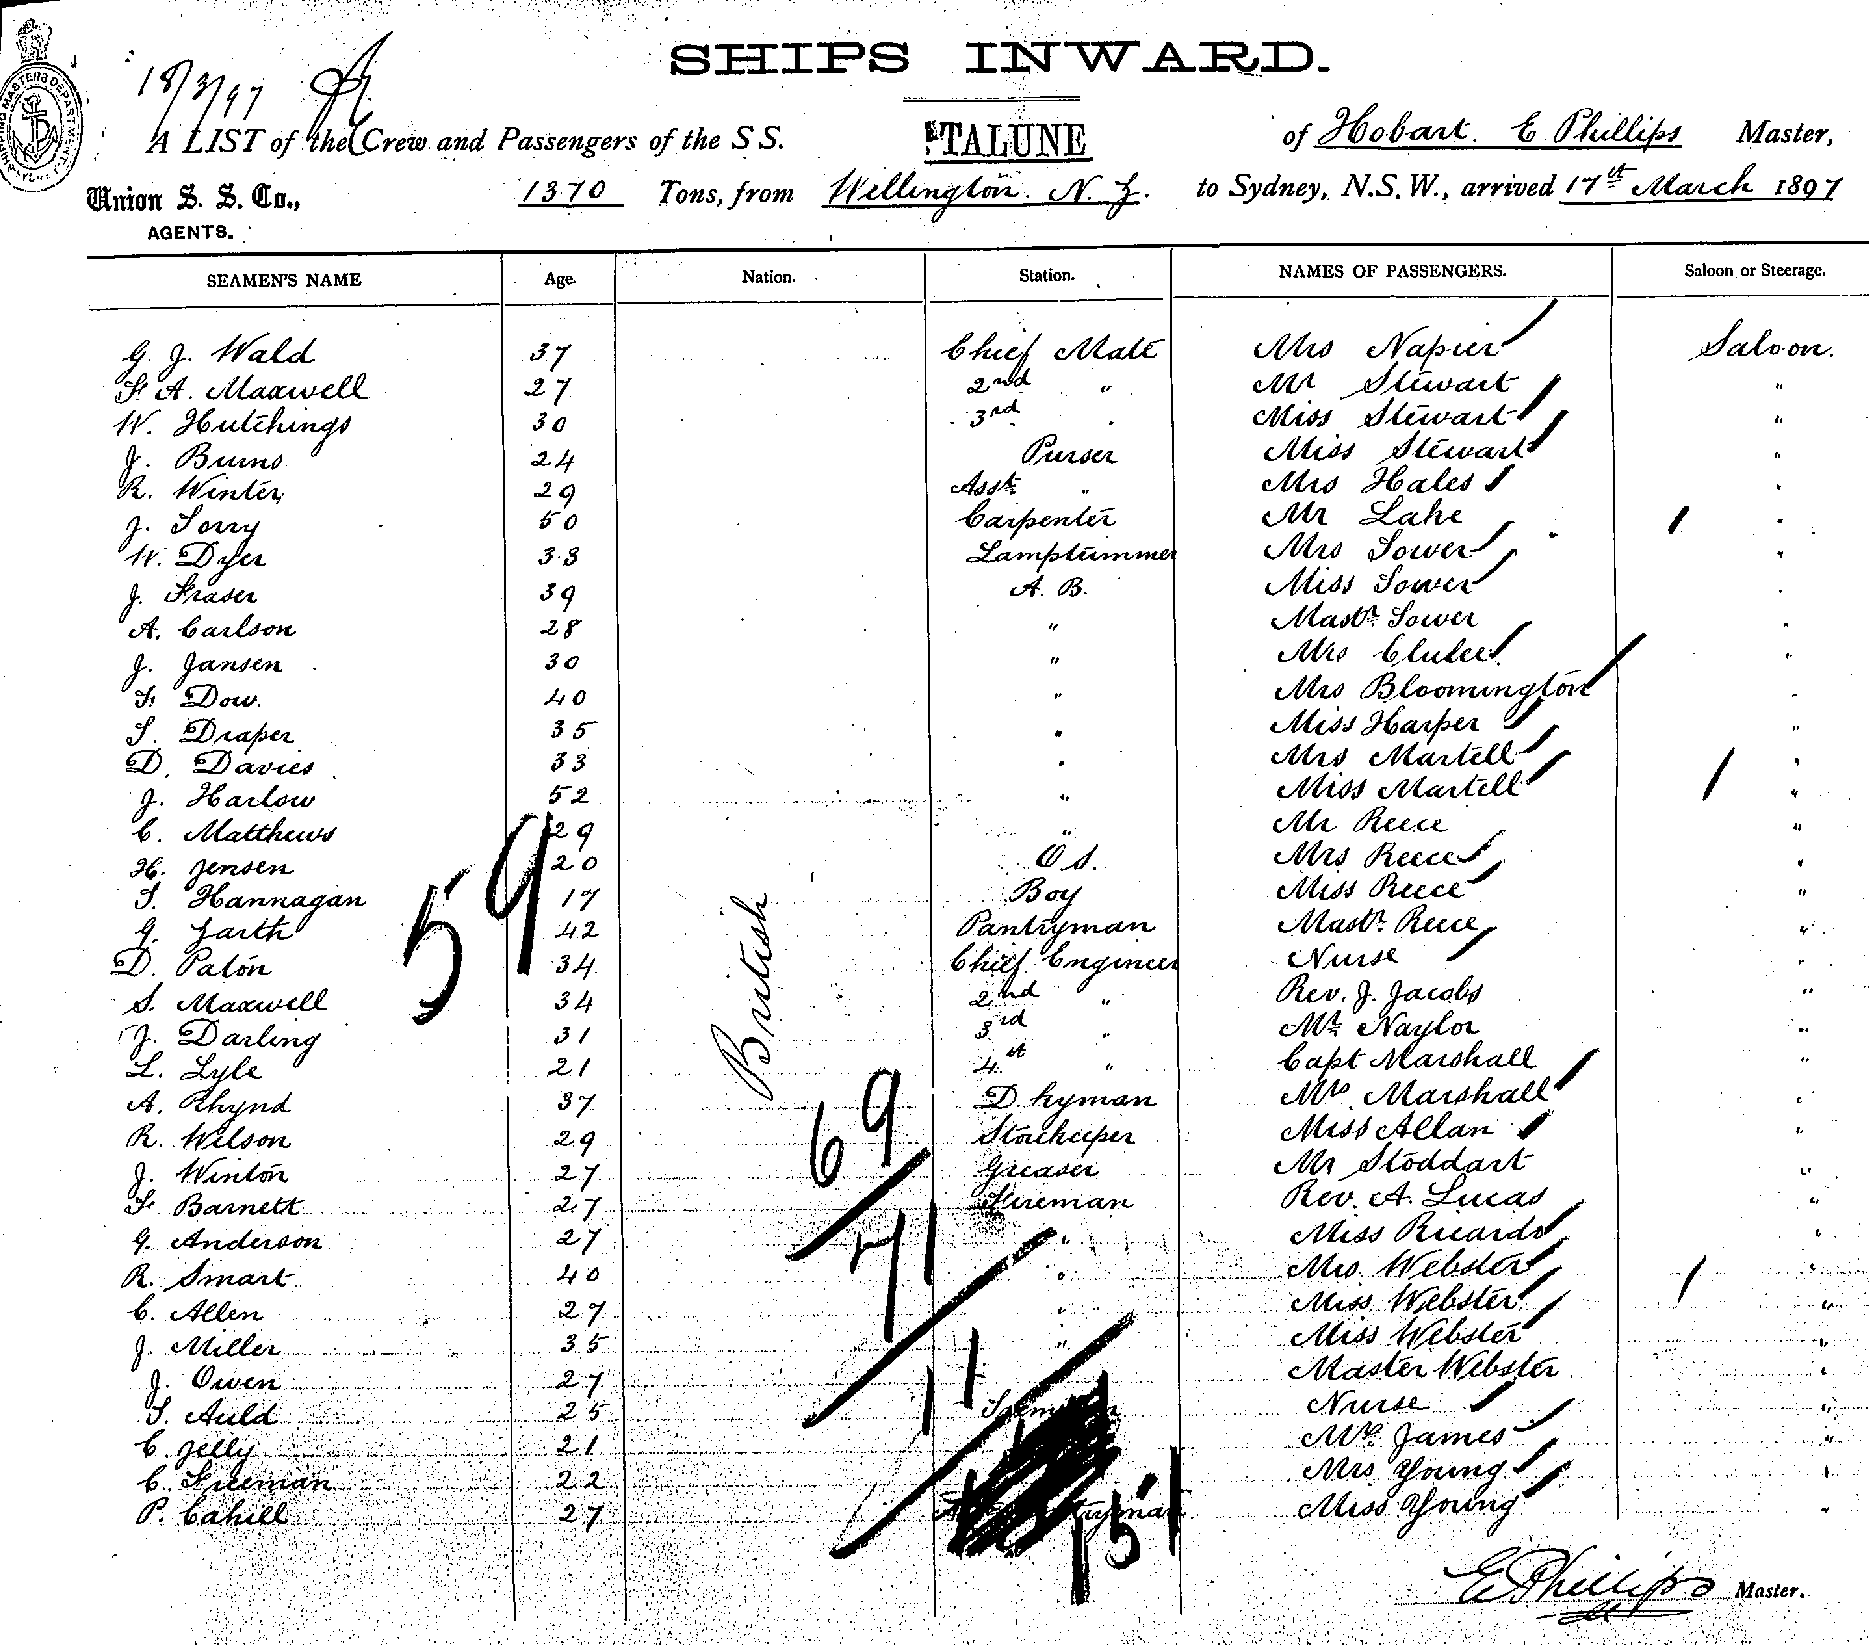 SHIPS INWARD.
18/3/97
A LIST of the Crew and Passengers of the S S. TALUNE of Hobart. E Phillips Master,
Union S. S. Co., 1370 Tons, from Wellington. N. Z. to Sydney, N.S.W., arrived 17th March 1897
AGENTS.
SEAMEN'S NAME Age. Nation. Station. NAMES OF PASSENGERS. Saloon or Steerage.
G. J. Wald 37 Chief Mate Mrs Napier Saloon.
F. A. Maxwell 27 2nd " Mr Stewart "
W. Hutchings 30 3rd Miss Stewart "
J. Burns 24 Purser Miss Stewart "
R. Winter 29 Asst. " Mrs Hales "
J. Torry 50 Carpenter Mr Lake "
W. Dyer 33 Lamptrimmer Mrs Tower "
J. Fraser 39 A. B. Miss Tower "
A. Carlson 28 " Mastr. Tower "
J. Jansen 30 " Mrs "
F. Dow. 40 " Mrs Bloomington "
T. Draper 35 " Miss Harper "
D. Davies 33 " Mrs Martell "
J. Harlow 52 " Miss Martell "
C. Matthews 29 " Mr Reece "
H. Jensen 20 O S. Mrs Reece "
T. Hannagan 17 Boy Miss Reece "
G. Garth 42 Pantryman Mastr. Reece "
D. Paton 34 Chief Engineer Nurse "
S. Maxwell 34 2nd " Rev. J. Jacobs "
J. Darling 31 3rd " Mr. Naylor "
L. Lyle 21 4th " Capt Marshall "
A. Rhynd 37 D. kyman Mrs. Marshall "
R. Wilson 29 Storekeeper Miss Allan "
J. Winton 27 Greaser Mr Stoddart "
F. Barnett 27 Fireman Rev. A. Lucas "
G. Anderson 27 " Miss Ricards "
R. Smart 40 " Mrs. Webster "
C. Allen 27 " Miss Webster "
J. Miller 35 " Miss Webster "
J. Owen 27 Master Webster "
T. Auld 25 Nurse "
C. Jelly 21 Mrs. James "
C. Freeman 22 Mrs Young "
P. Cahill 27 Miss Young "
British
59
69
71
11
151
E Phillips Master.